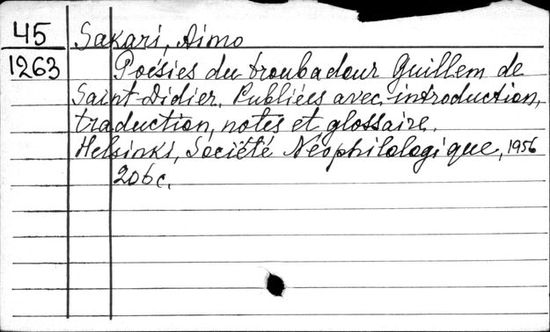 45 Sakari, Aimo
1263 Poésies du troubadour Guillem de
Saint-Didier. Publiées avec introduction,
traduction, notes et glossaire.
Helsinki, Société Néophilologique, 1956
206 c.